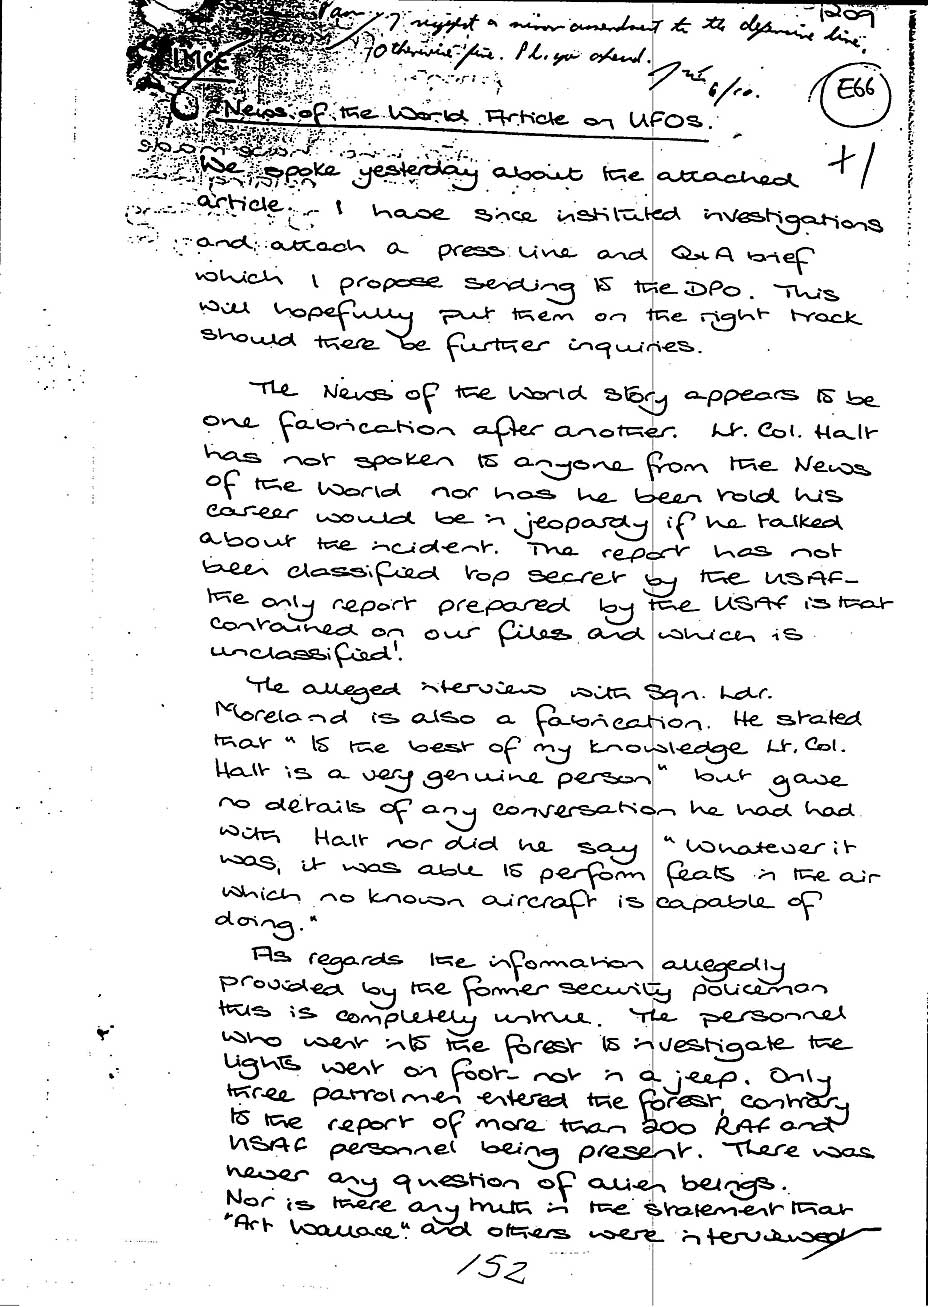 1209
I suggest a minor amendment to the defensive line,
Otherwise fine. Pl. you o/send.
6/10.
E66
News of the World Article on UFOs.
+1
We spoke yesterday about the attached
article. I have since instituted investigations
and attach a press line and Q&A brief
which I propose sending to the DPO. This
will hopefully put them on the right track
should there be further inquiries.
The News of the World story appears to be
one fabrication after another. Lt. Col. Halt
has not spoken to anyone from the News
of the World nor has he been told his
career would be in jeopardy if he talked
about the incident. The report has not
been classified top secret by the USAF -
the only report prepared by the USAF is that
contained on our files and which is
unclassified!
The alleged interview with Sqn. Ldr.
Moreland is also a fabrication. He stated
that "to the best of my knowledge Lt. Col.
Halt is a very genuine person" but gave
no details of any conversation he had had
with Halt nor did he say "Whatever it
was, it was able to perform feats in the air
which no known aircraft is capable of
doing."
As regards the information allegedly
provided by the former security policeman
this is completely untrue. The personnel
who went into the forest to investigate the
lights went on foot - not in a jeep. Only
three patrolmen entered the forest, contrary
to the report of more than 200 RAF and
USAF personnel being present. There was
never any question of alien beings.
Nor is there any truth in the statement that
"Art Wallace" and others were interviewed
152